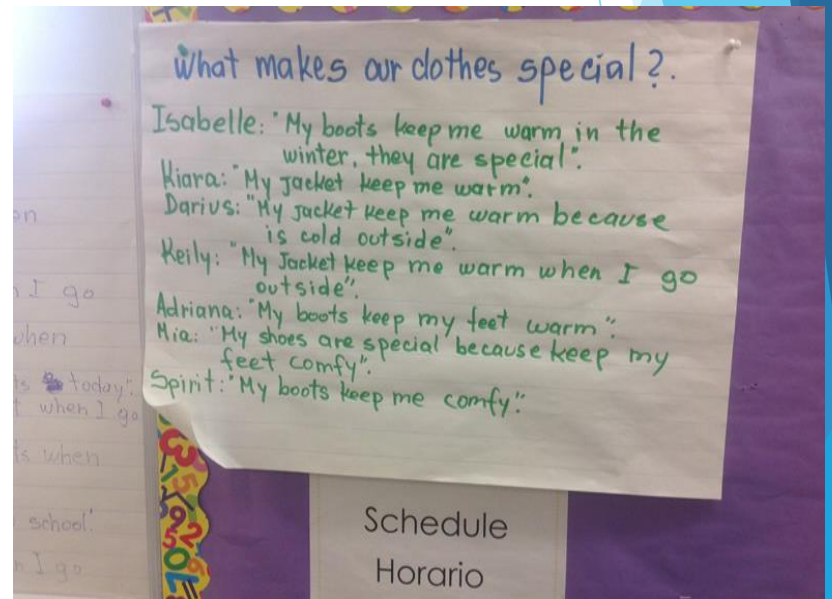 What makes our clothes special?.
Isabelle: "My boots keep me warm in the
winter, they are special".
Kiara: "My Jacket keep me warm".
Darius: "My Jacket keep me warm because
is cold outside".
Keily: "My Jacket keep me warm when I go
outside".
Adriana: "My boots keep my feet warm".
Mia: "My shoes are special because keep my
feet comfy".
Spirit: "My boots keep me comfy".
Schedule
Horario
I go
when
today".
when I go
when
school".
I go